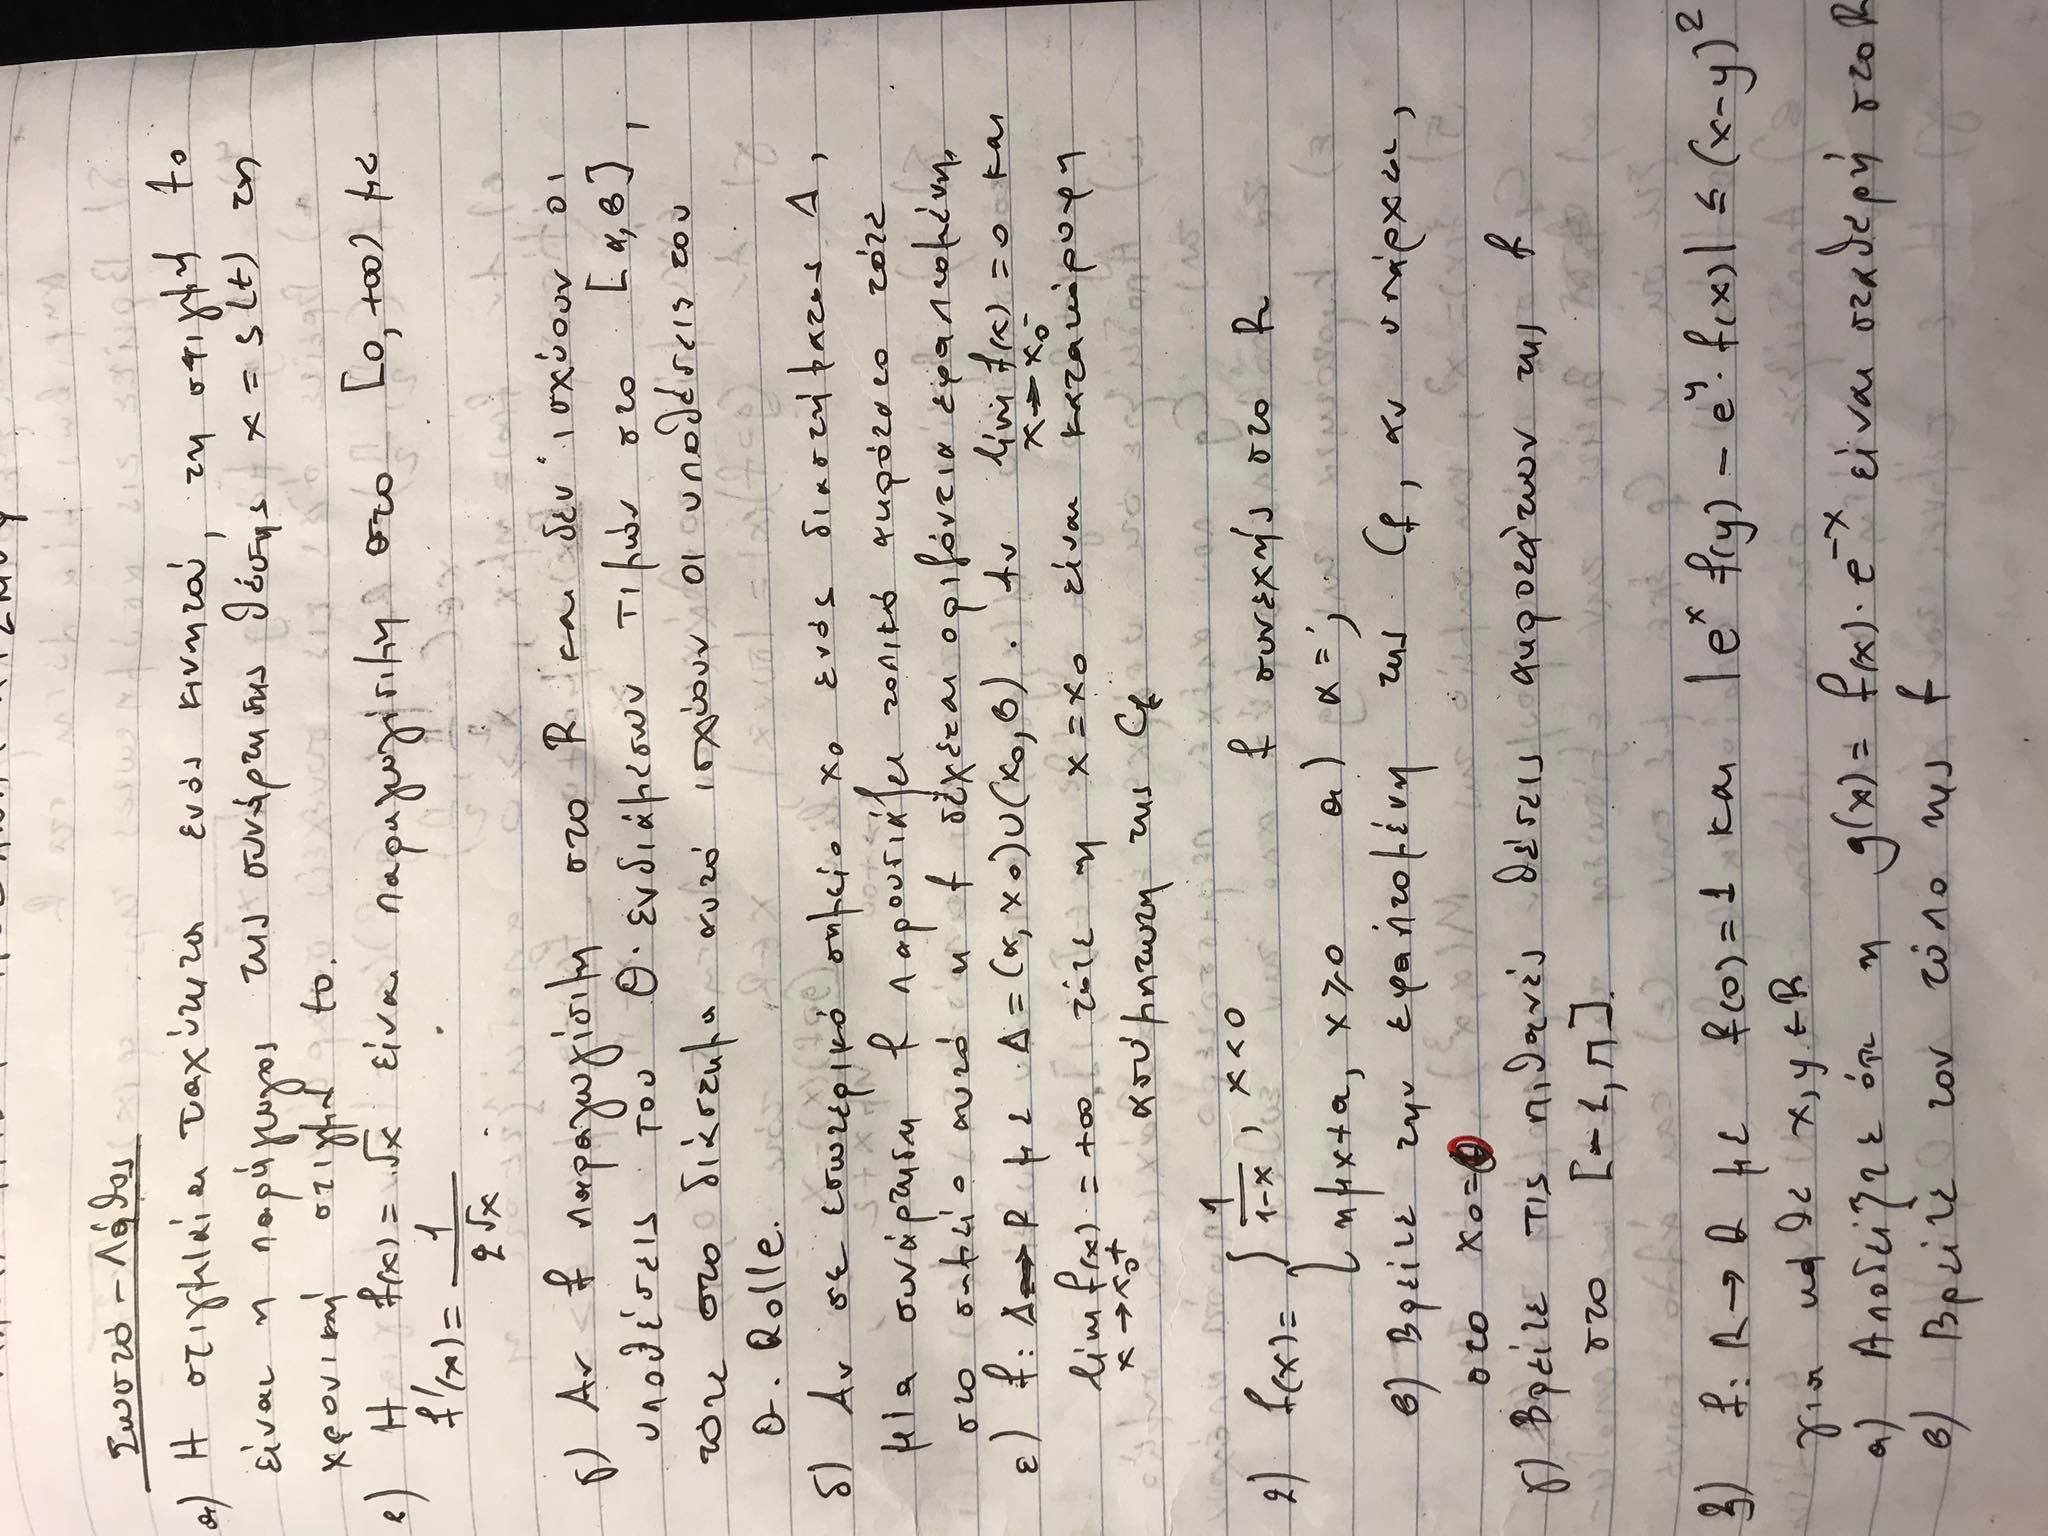 Σωστό - Λάθος
α) Η στιγμιαία ταχύτητα ενός κινητού, τη στιγμή t₀
είναι η παράγωγος της συνάρτησης θέσης x = s(t) τη
χρονική στιγμή t₀.
β) Η f(x) = √x είναι παραγωγίσιμη στο [0, +∞) με
f'(x) = 1/(2√x).
γ) Αν f παραγωγίσιμη στο R και δεν ισχύουν οι
υποθέσεις του Θ. ενδιάμεσων τιμών στο [α, β],
τότε στο διάστημα αυτό ισχύουν οι υποθέσεις του
Θ. Rolle.
δ) Αν σε εσωτερικό σημείο x₀ ενός διαστήματος Δ,
μία συνάρτηση f παρουσιάζει τοπικό ακρότατο τότε
στο σημείο αυτό η f δέχεται οριζόντια εφαπτομένη.
ε) f: Δ → R με Δ = (α, x₀)∪(x₀, β). Αν lim f(x) = 0 και
x→x₀⁻
lim f(x) = +∞ τότε η x = x₀ είναι κατακόρυφη
x→x₀⁺
ασύμπτωτη της Cf
2) f(x) = { 1/(1-x), x<0 f συνεχής στο R
ημx+α, x≥0 α) α = ;
β) Βρείτε την εφαπτομένη της Cf, αν υπάρχει,
στο x₀=0
γ) Βρείτε τις πιθανές θέσεις ακροτάτων της f
στο [-1, π].
3) f: R → R με f(0) = 1 και |eˣ f(y) - eʸ · f(x)| ≤ (x-y)²
για κάθε x, y ∈ R
α) Αποδείξτε ότι η g(x) = f(x) · e⁻ˣ είναι σταθερή στο R
β) Βρείτε τον τύπο της f